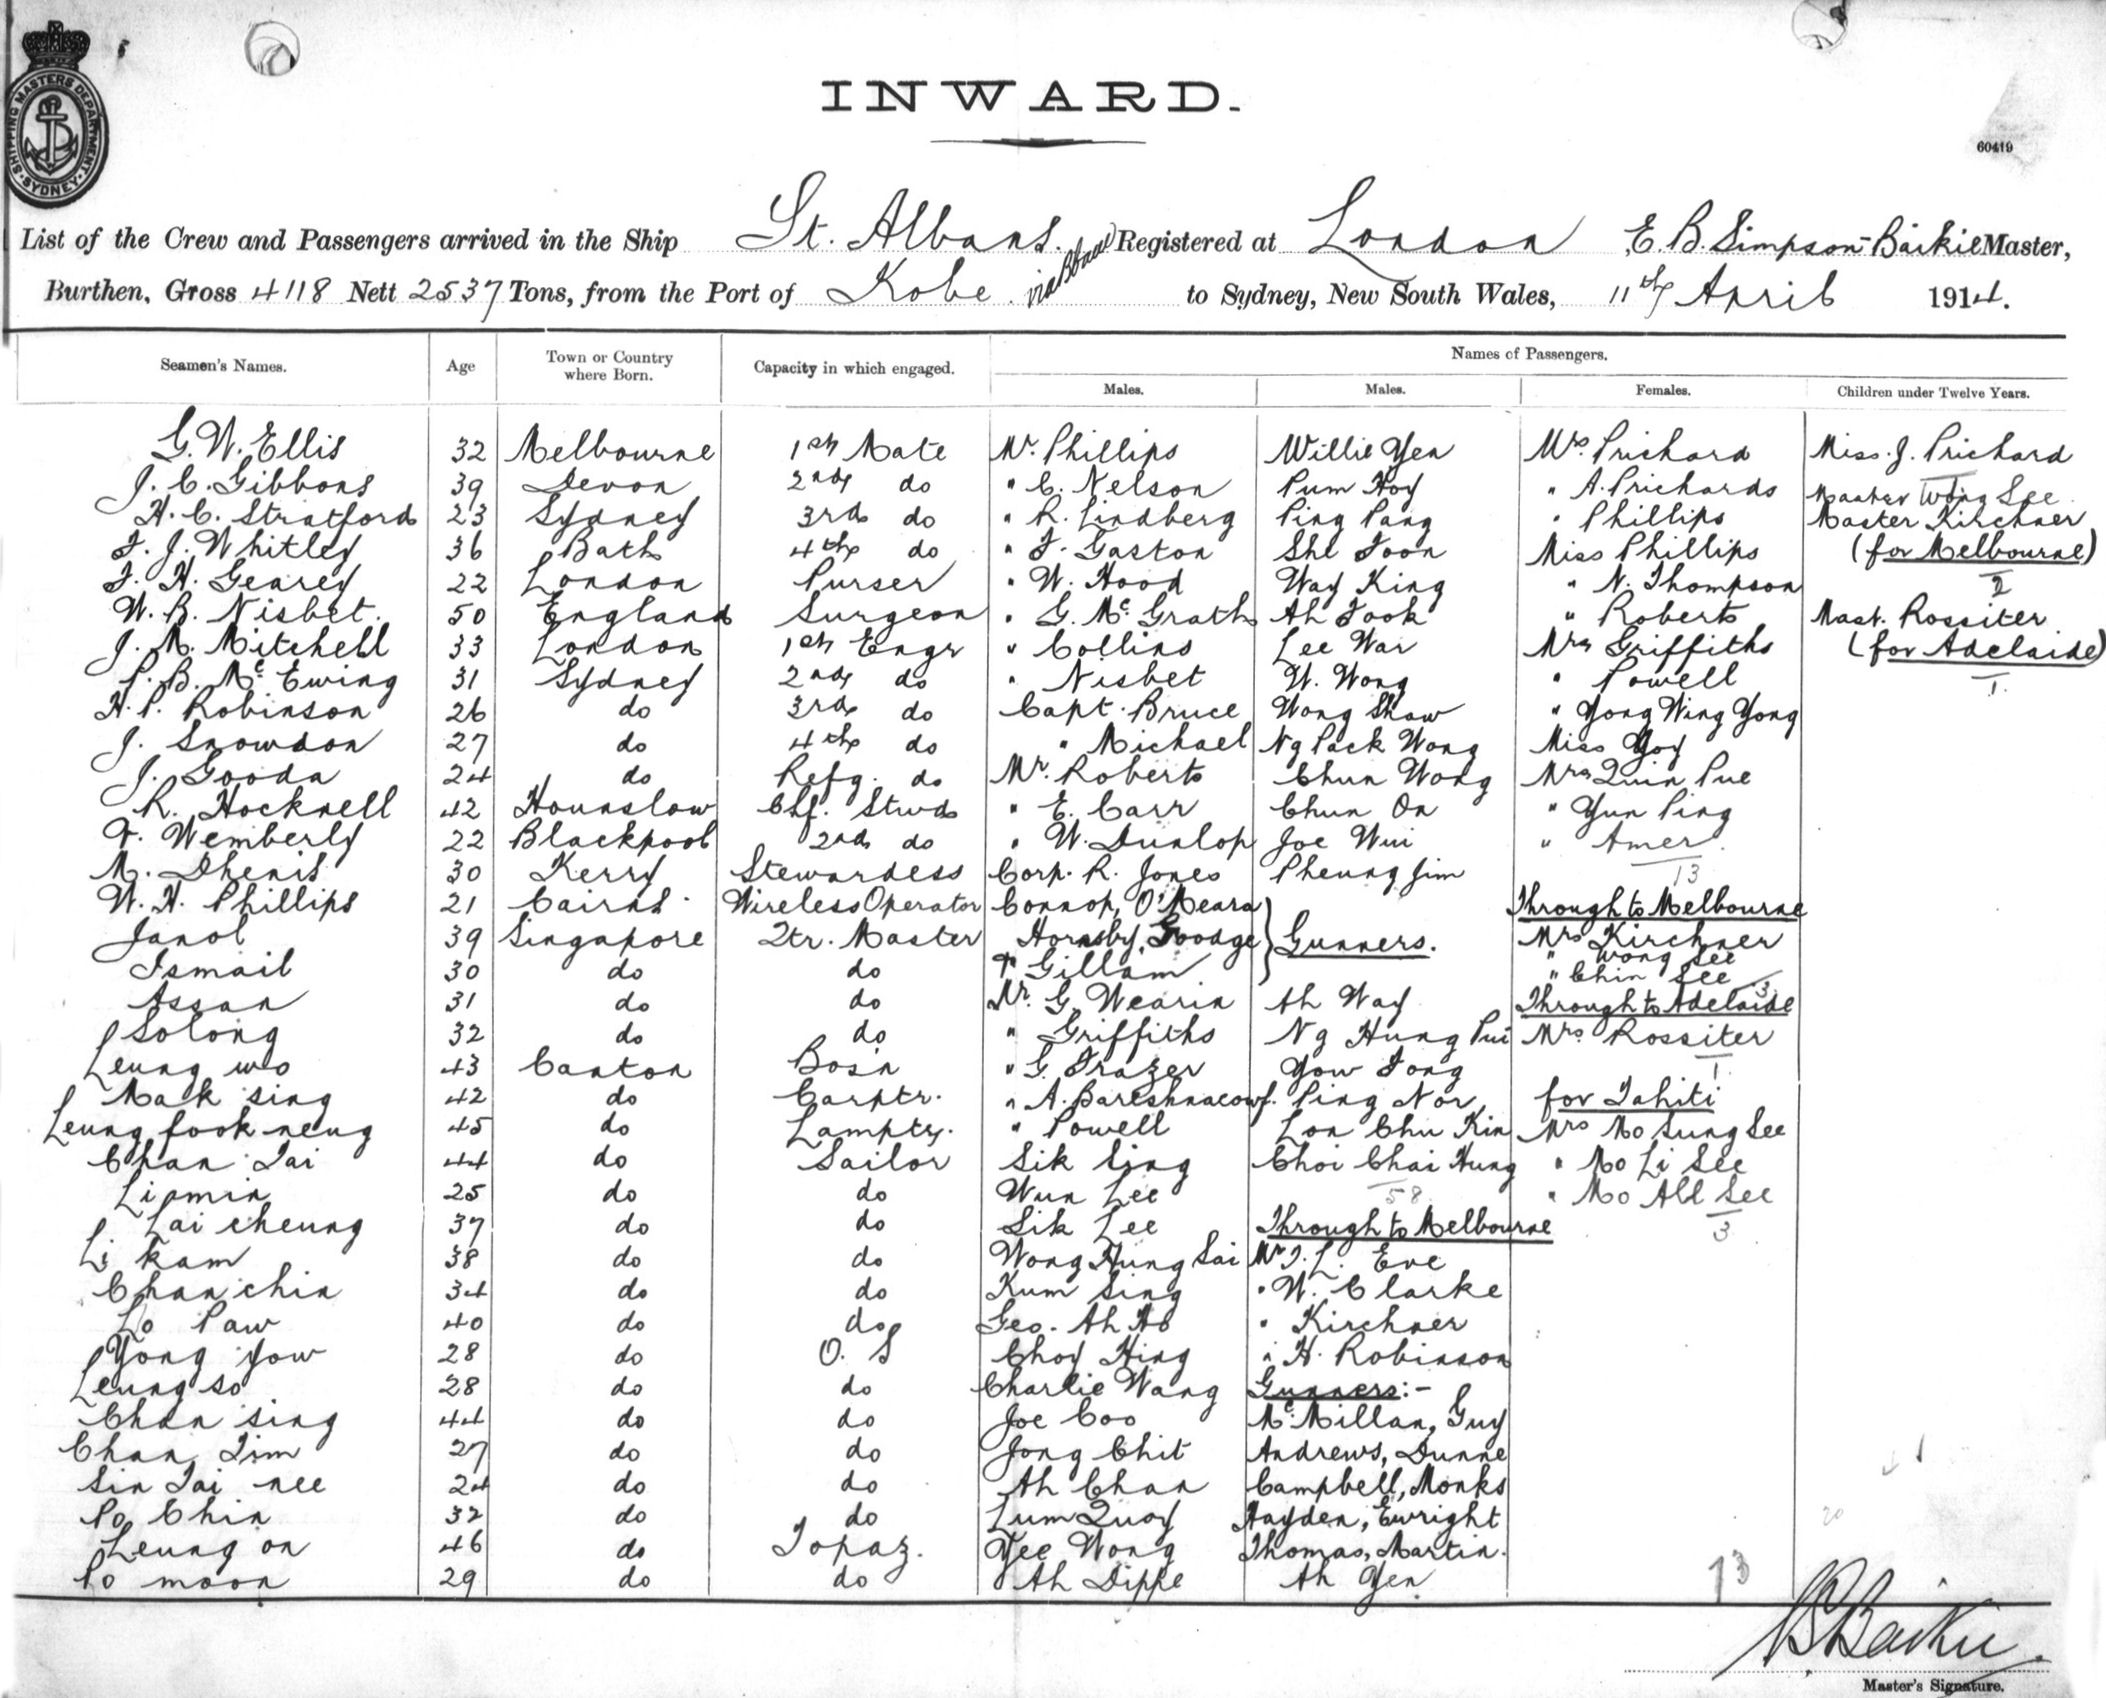 SHIPPING MASTERS DEPARTMENT
SYDNEY
INWARD.
60419
List of the Crew and Passengers arrived in the Ship St. Albans. Registered at London E. B. Simpson-Baikie Master,
Burthen, Gross 4118 Nett 2537 Tons, from the Port of Kobe via to Sydney, New South Wales, 11th April 1914.
Seamen's Names. Age Town or Country where Born. Capacity in which engaged. Names of Passengers.
Males. Males. Females. Children under Twelve Years.
G. W. Ellis 32 Melbourne 1st Mate Mr. Phillips Willie Yen Mrs. Prichard Miss. J. Prichard
J. C. Gibbons 39 Devon 2nd do " C. Nelson Pum Hoy " A. Prichards Master Wong See
H. C. Stratford 23 Sydney 3rd do " R. Lindberg Ping Pang " Phillips Master Kirchner
F. J. Whitley 36 Bath 4th do " F. Gaston She Foon Miss Phillips (for Melbourne)
F. H. Gearey 22 London Purser " W. Hood Way King " N. Thompson 2
W. B. Nisbet. 50 England Surgeon " G. McGrath Ah Fook " Roberts Mast. Rossiter
J. M. Mitchell 33 London 1st Engr " Collins Lee War Mrs Griffiths (for Adelaide)
P. B. McEwing 31 Sydney 2nd do " Nisbet W. Wong " Powell 1.
H. P. Robinson 26 do 3rd do Capt. Bruce Wong Shaw " Yong Wing Yong
J. Snowdon 27 do 4th do " Michael Ng Pack Wong Miss Yoy
J. Gooda 24 do Refg. do Mr. Roberts Chun Wong Mrs Quin Pue
R. Hocknell 42 Hounslow Chf. Stwd " E. Carr Chun On " Yun Ping
F. Wemberly 22 Blackpool 2nd do " W. Dunlop Joe Wui " Amer.
M. Dhenis 30 Kerry Stewardess Corp. R. Jones Pheung Jim 13
W. H. Phillips 21 Cairns. Wireless Operator Connop, O'Meara Through to Melbourne
Janol 39 Singapore Qtr. Master Hornsby, Goodge Gunners. Mrs Kirchner
Ismail 30 do do & Gillam " Wong See
" Chin See 3
Assan 31 do do Mr. G. Wearin Ah Way Through to Adelaide
Solong 32 do do " Griffiths Ng Hung Pui Mrs. Rossiter
Leung wo 43 Canton Bosn " G. Frazer Yow Fong 1
Mak sing 42 do Carptr. " A. Bareshnacowf. Ping Nor for Tahiti
Leung fook neng 45 do Lamptr. " Powell Lon Chu Kin Mrs Mo Sung See
Chan Tai 44 do Sailor Sik Sing Choi Chai Hung " Mo Li See
Li omin 25 do do Wun Lee 58 " Mo All See
Lai cheung 37 do do Sik Lee Through to Melbourne 3
Li kam 38 do do Wong Hung Sai Mr. J. L. Eve
Chan chin 34 do do Kum Sing " W. Clarke
Lo Paw 40 do do Geo. Ah Ho " Kirchner
Yong yow 28 do O. S Choy Hing " H. Robinson
Leung so 28 do do Charlie Wang Gunners:-
Chan sing 44 do do Joe Coo McMillan, Guy
Chan Tim 27 do do Jong Chit Andrews, Dunne
Sin Tai nee 24 do do Ah Chan Campbell, Monks
Po Chin 32 do do Lum Quoy Hayden, Ewright
Leung on 46 do Topaz. Yee Wong Thomas, Martin.
Po moon 29 do do Ah Dippe Ah Yen 73
Master's Signature.